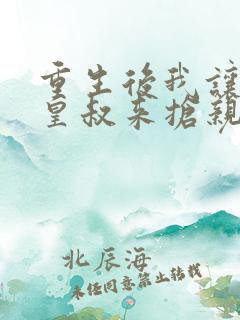 重生後我讓
皇叔來搶親
北辰海
未經同意禁止轉載